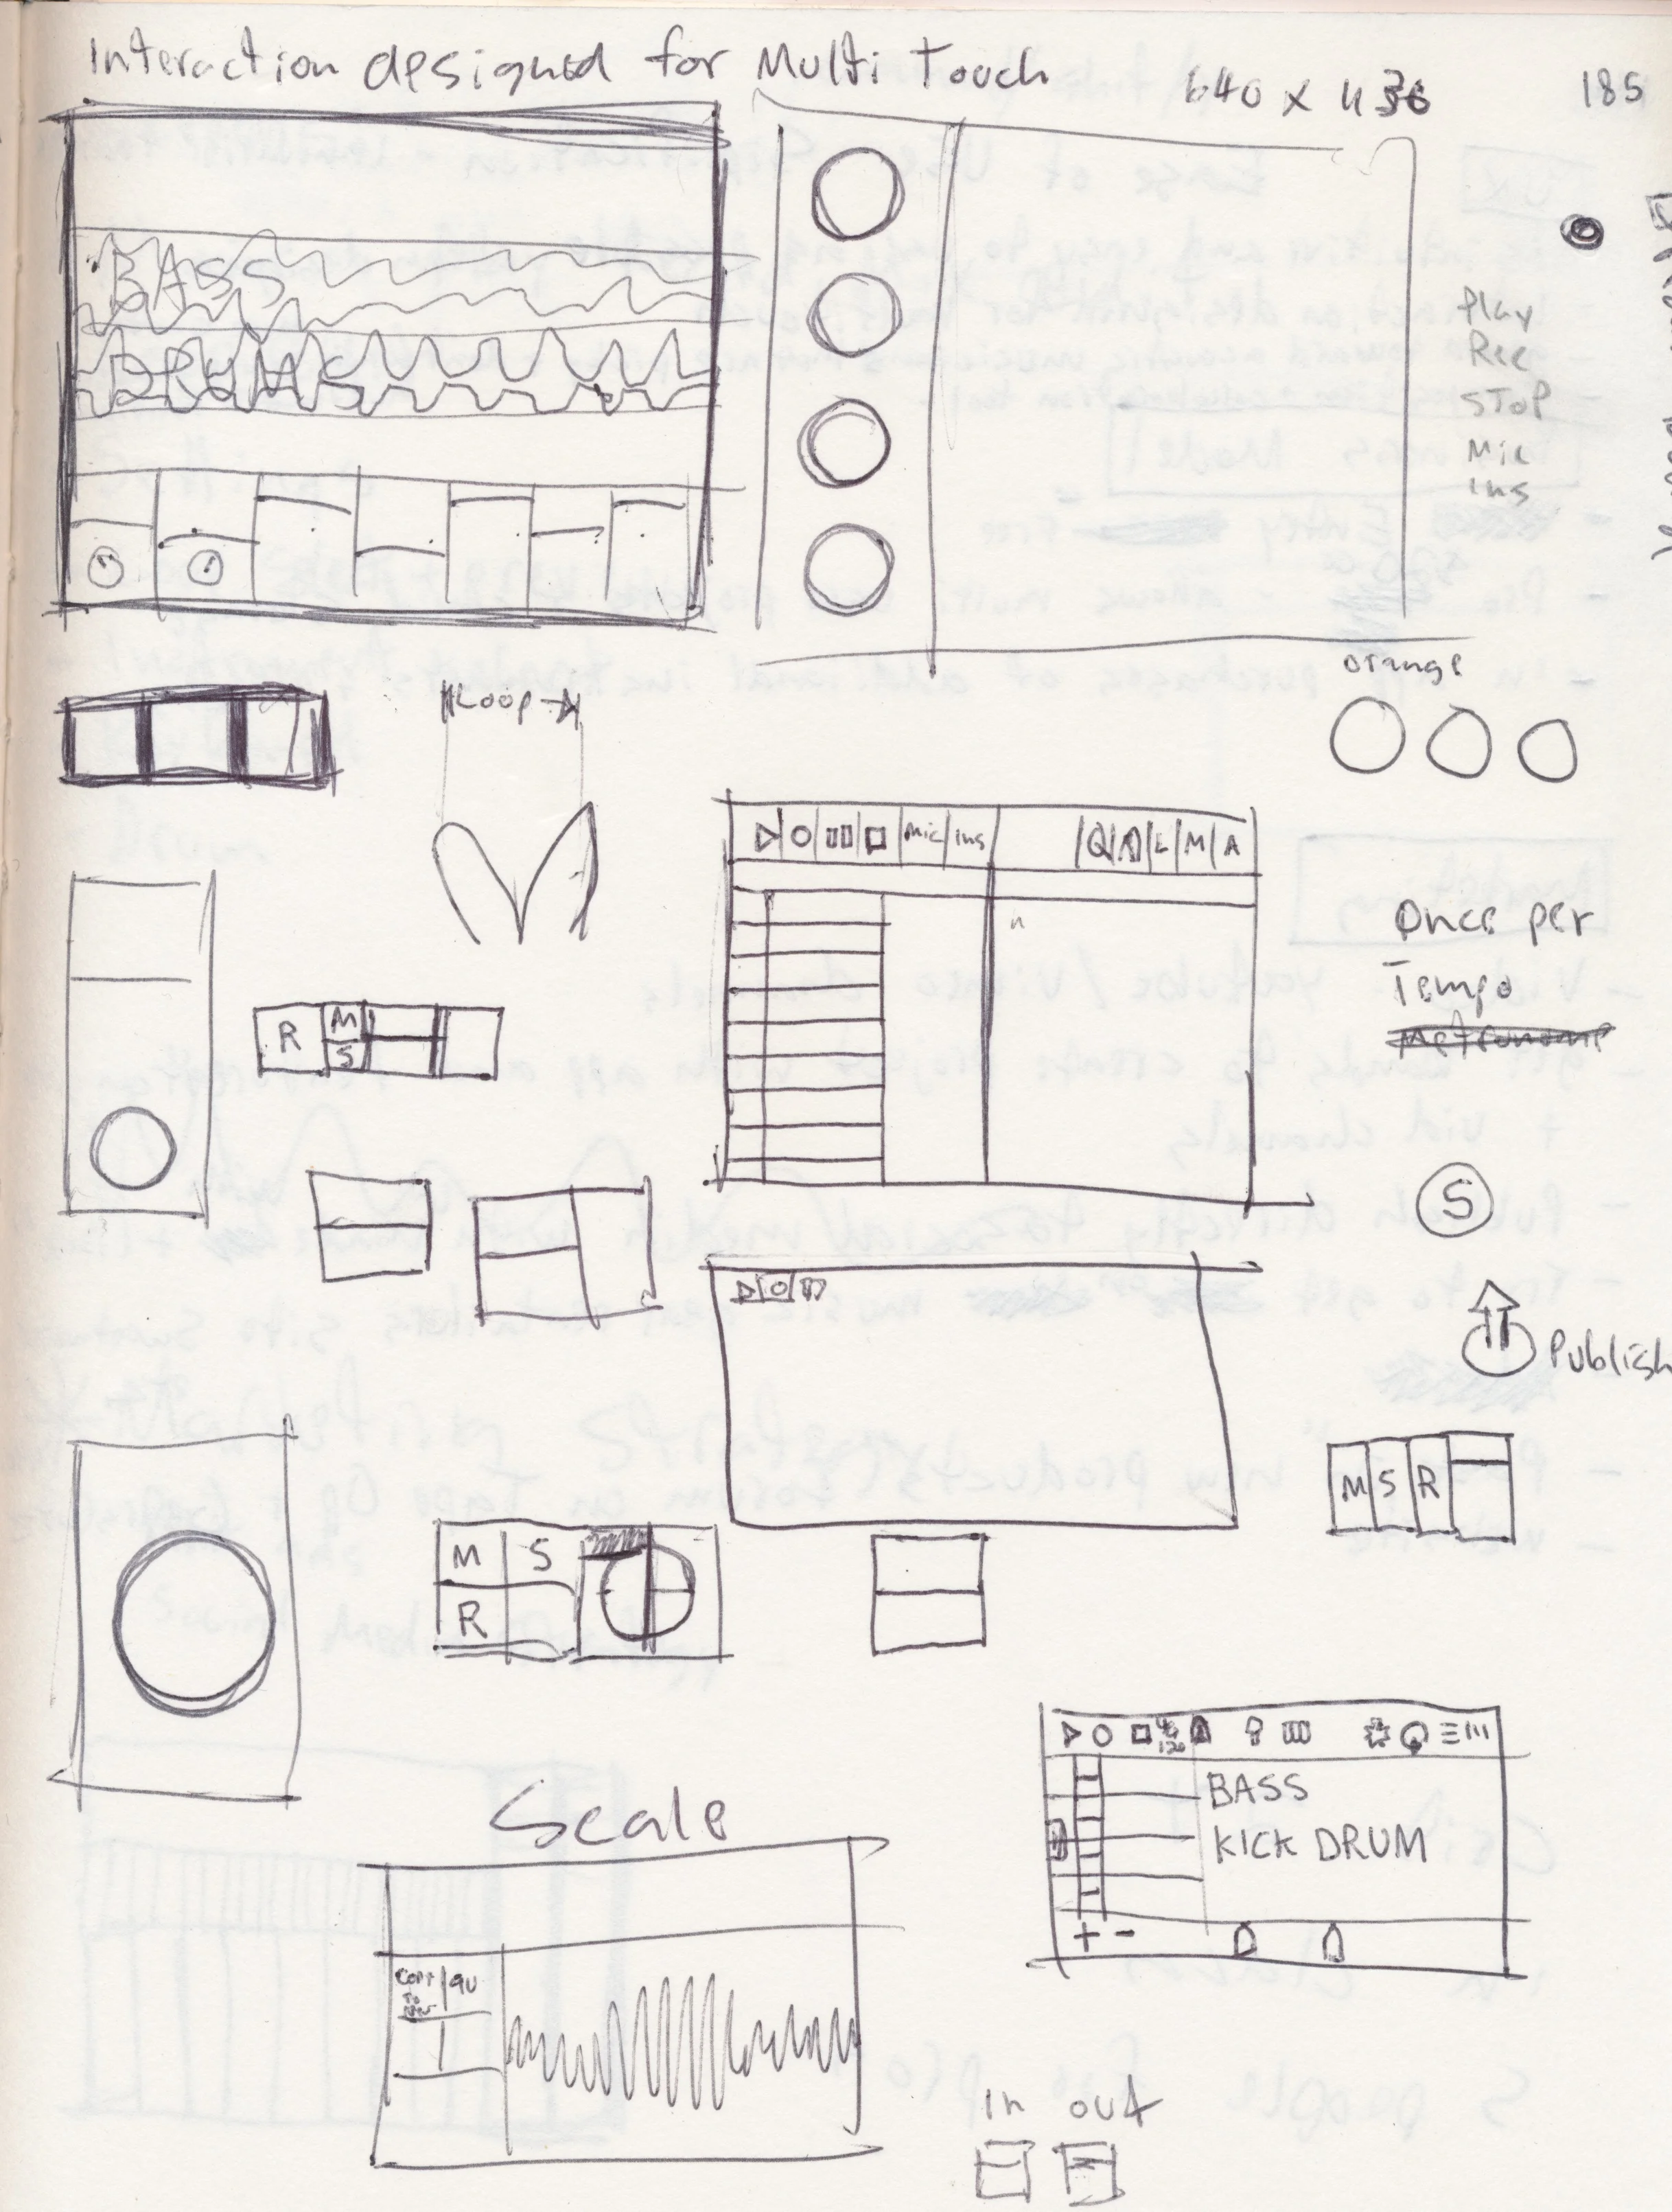 Interaction designed for Multi Touch
640 x 436
185
BASS
DRUMS
Play
Rec
STOP
Mic
Ins
orange
Loop
Mic Ins
L M A
Once per
Tempo
R M
S
S
Publish
M S R
M S
R
BASS
KICK DRUM
+ -
Scale
Copy
To
In out